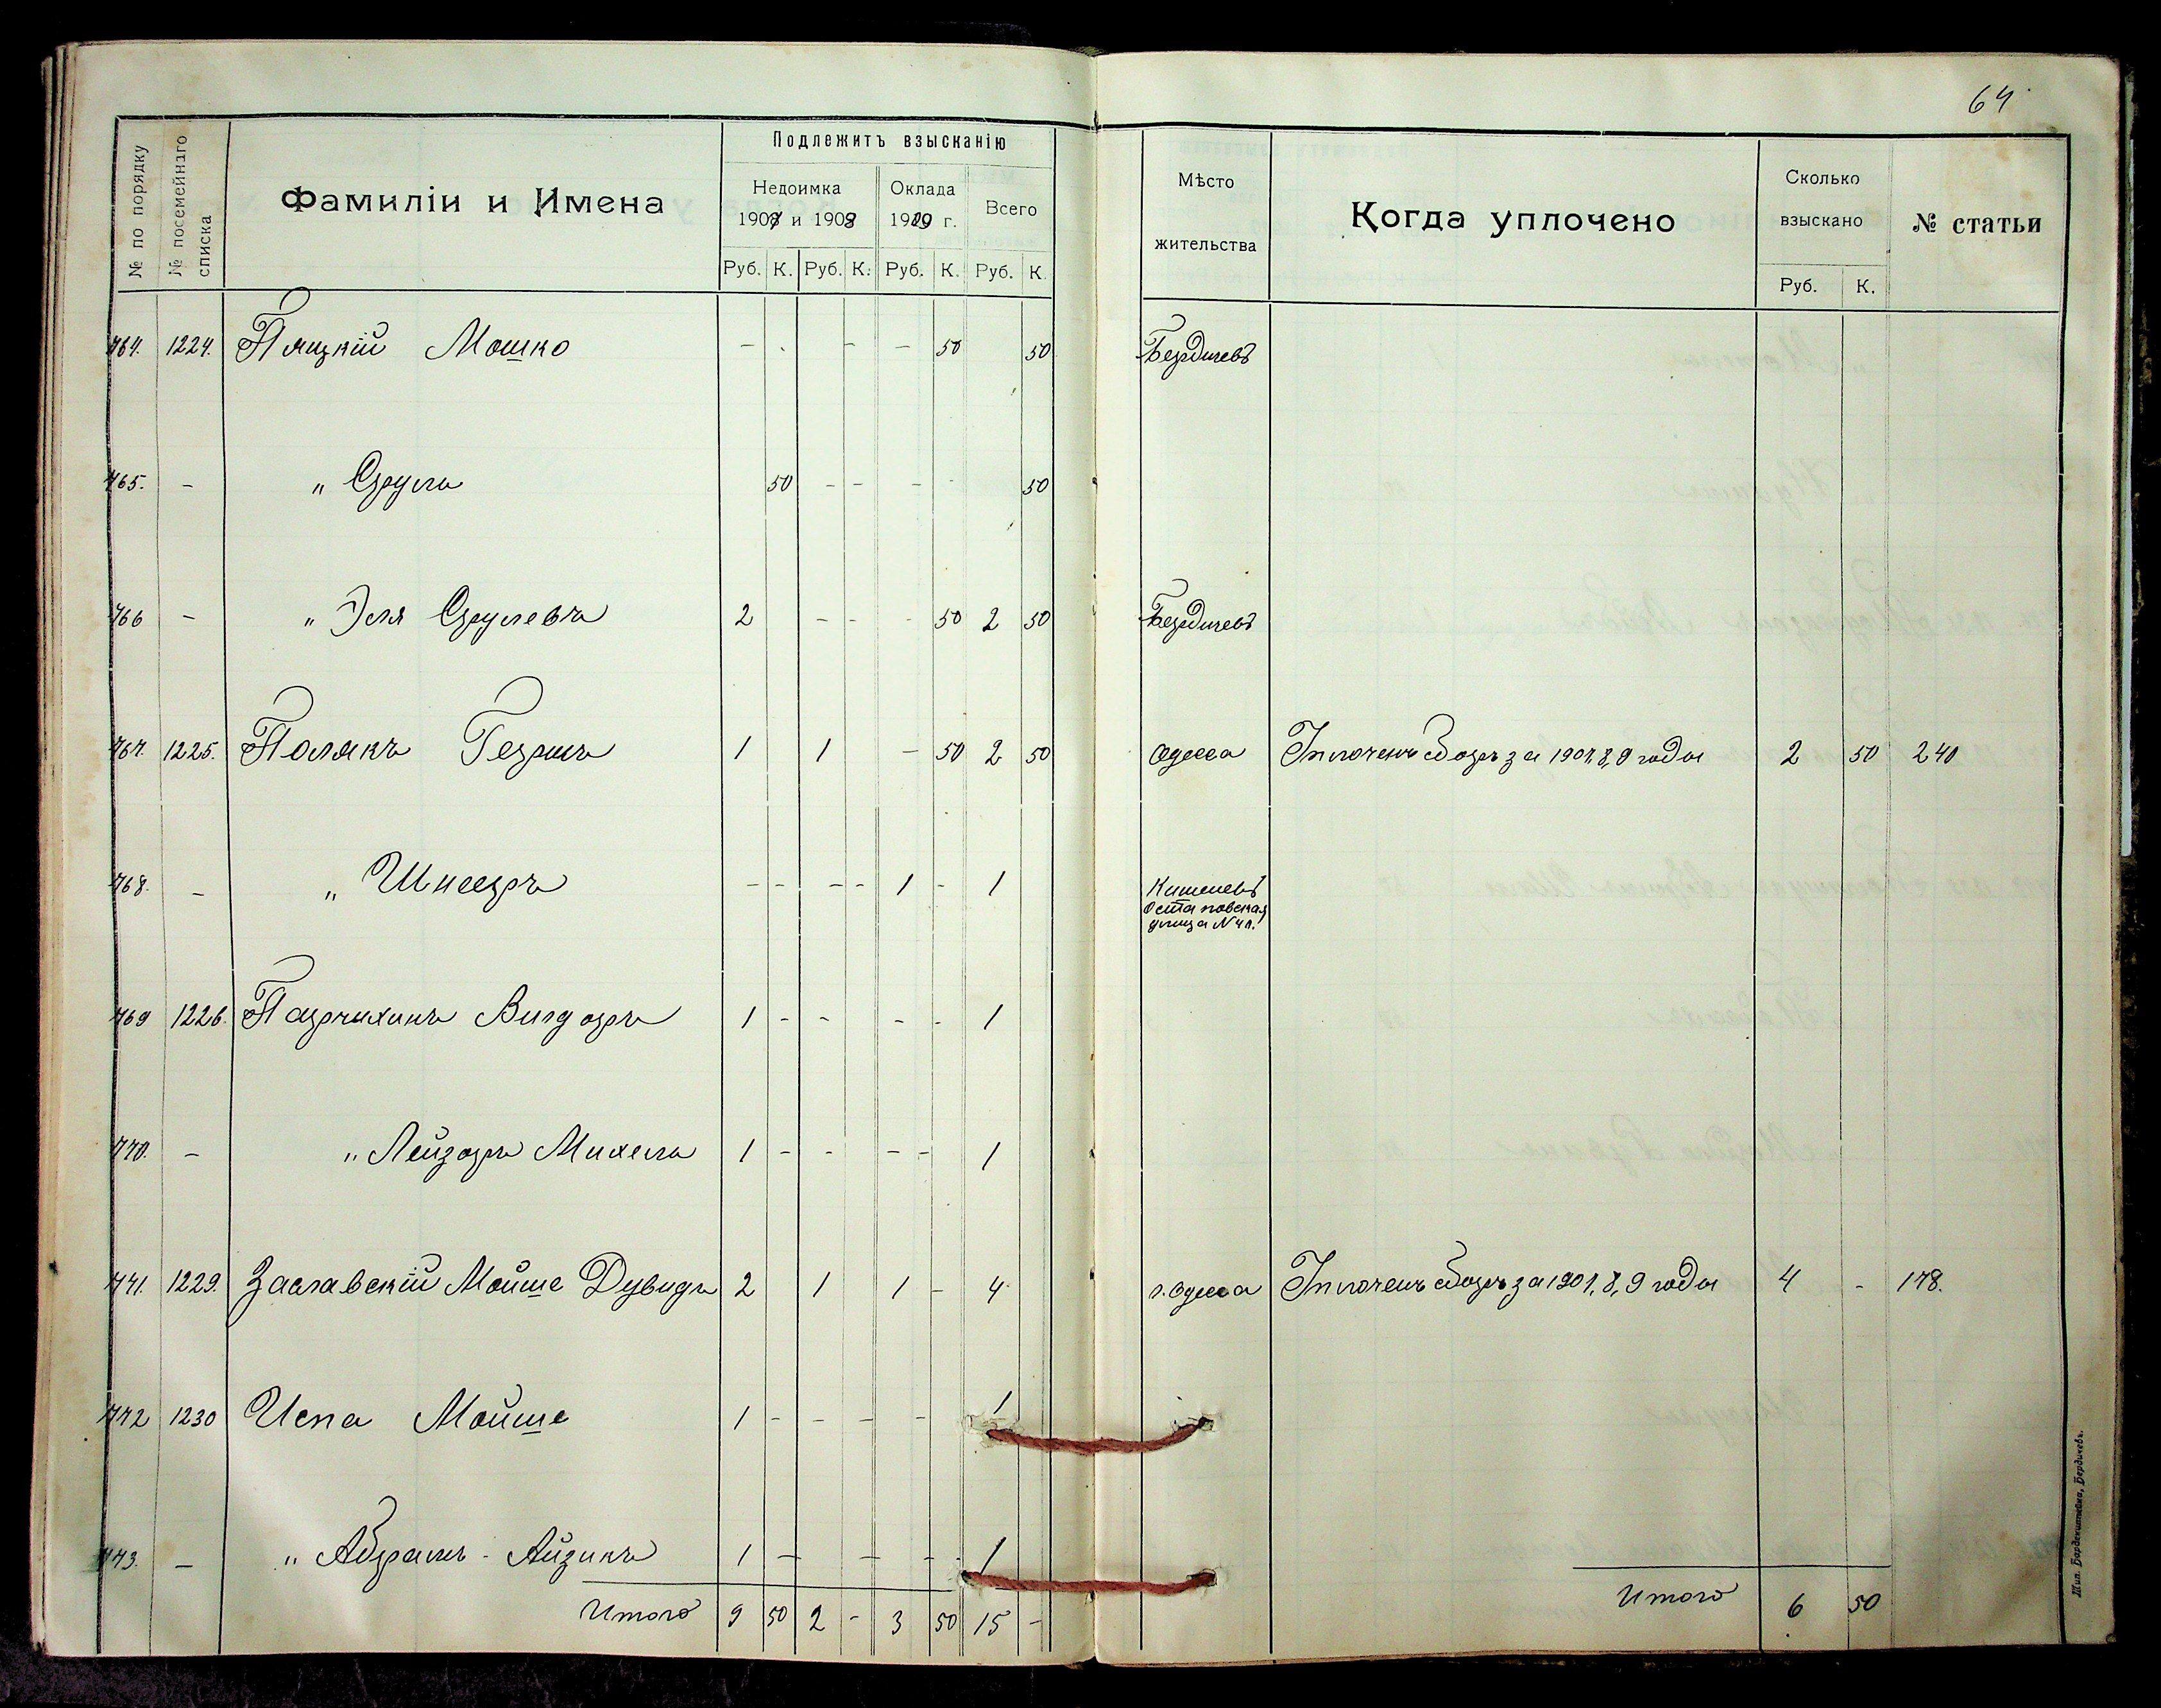 64
№ по порядку
№ посемейнаго списка
Фамиліи и Имена
Подлежитъ взысканію
Недоимка
1907 и 1908
Оклада
1909 г.
Всего
Руб. К. Руб. К. Руб. К. Руб. К.
Мѣсто
жительства
Когда уплочено
Сколько
взыскано
Руб. К.
№ статьи
764. 1224. Пляцкій Мошко - - - - 50 50 Бердичевъ
765. - " Сруль 50 - - - - 50
766 - " Эля Срулевъ 2 - - - 50 2 50 Бердичевъ
767. 1225. Полякъ Гершъ 1 1 - 50 2 50 Одесса Уплоченъ сборъ за 1907, 8, 9 годы 2 50 240
768. - " Шнееръ - - - - 1 - 1 Кишеневъ
улица №
769 1226. Вигдоръ 1 - - - - 1
770. - " Лейзоръ Михель 1 - - - - 1
771. 1229. Заславскій Мойше Дувидъ 2 1 1 - 4 г. Одесса Уплоченъ сборъ за 1907, 8, 9 годы 4 - 178.
772 1230 Испа Мойше 1 - - - - 1
773. - " Абрамъ - Айзикъ 1 - - - 1
Итого 9 50 2 - 3 50 15 -
Итого 6 50
Тип. Барденштейна, Бердичевъ.